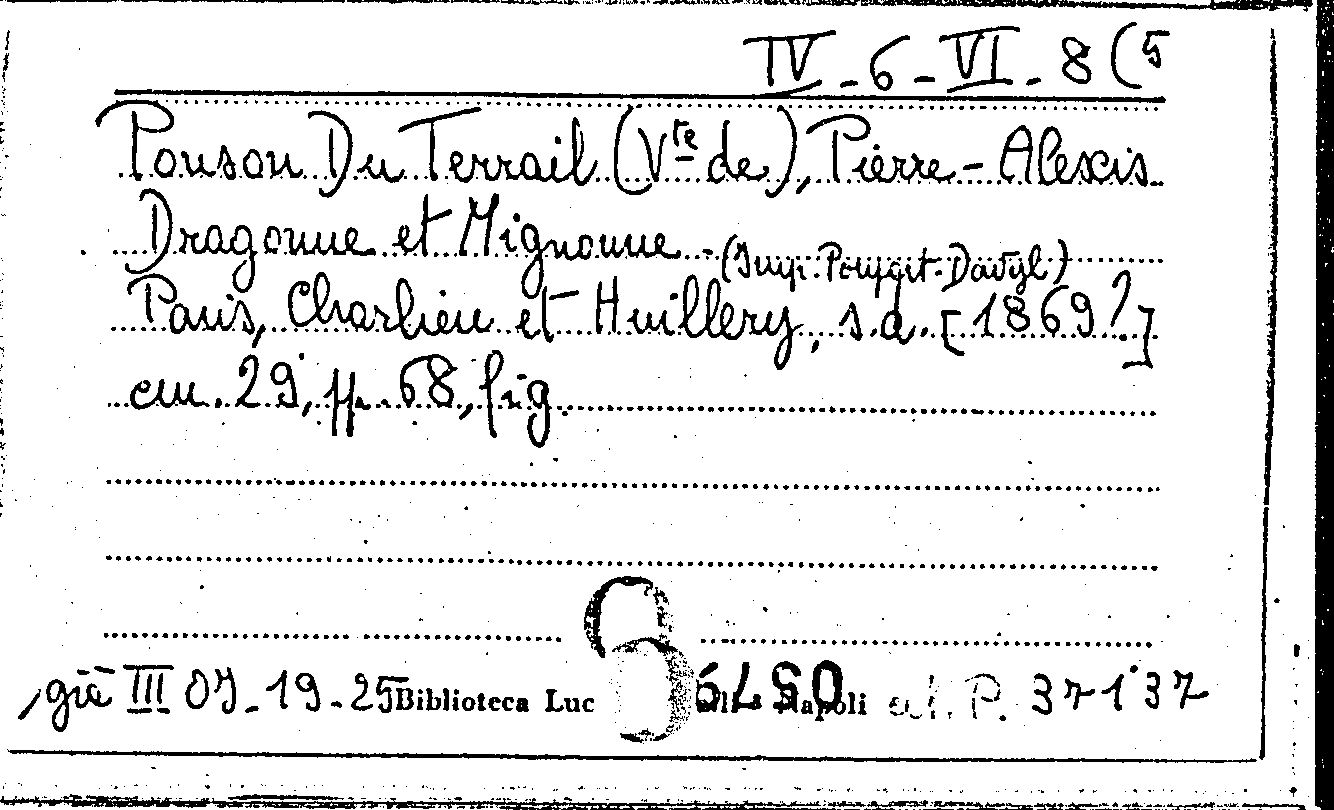 IV-6-VI-8(5
Ponson Du Terrail (Vte de), Pierre-Alexis
Dragonne et Mignonne -
(Imp. Poupart-Davyl)
Paris, Charlieu et Huillery, s.d. [1869?]
cm. 29, pp. 68, fig.
già III 07-19-25 Biblioteca Luc Napoli P. 37137